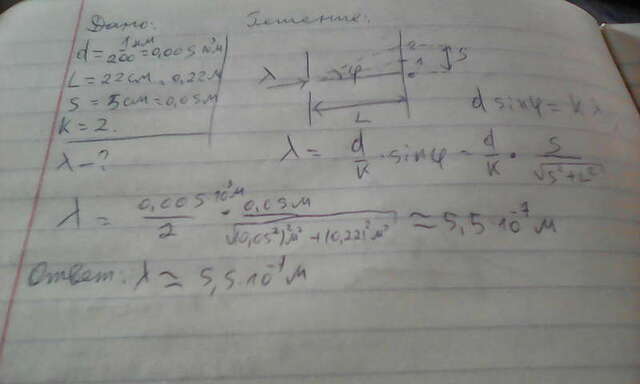 Дано:
Решение:
d = 1мм/200 = 0,005 10³м
L = 22см = 0,22м
S = 5см = 0,05м
K = 2.
λ - ?
λ
φ
2
1
0
S
L
d sinφ = Kλ
λ = d/K · sinφ = d/K · S/√(S²+L²)
λ = 0,005 10³м/2 · 0,05м/√((0,05²)²м²+(0,22)²м²) ≈ 5,5·10⁻⁷ м
Ответ. λ ≈ 5,5·10⁻⁷м